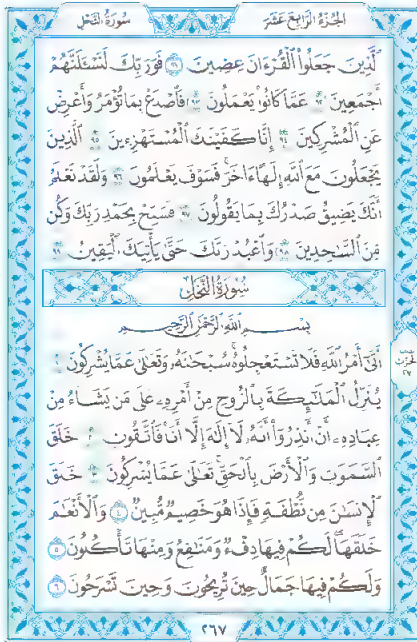 سُورَةُ النَّحْلِ الجُزْءُ الرَّابِعَ عَشَرَ
الَّذِينَ جَعَلُوا الْقُرْءَانَ عِضِينَ ٩١ فَوَرَبِّكَ لَنَسْـَٔلَنَّهُمْ
أَجْمَعِينَ ٩٢ عَمَّا كَانُوا يَعْمَلُونَ ٩٣ فَاصْدَعْ بِمَا تُؤْمَرُ وَأَعْرِضْ
عَنِ الْمُشْرِكِينَ ٩٤ إِنَّا كَفَيْنَٰكَ الْمُسْتَهْزِءِينَ ٩٥ الَّذِينَ
يَجْعَلُونَ مَعَ اللَّهِ إِلَٰهًا ءَاخَرَ فَسَوْفَ يَعْلَمُونَ ٩٦ وَلَقَدْ نَعْلَمُ
أَنَّكَ يَضِيقُ صَدْرُكَ بِمَا يَقُولُونَ ٩٧ فَسَبِّحْ بِحَمْدِ رَبِّكَ وَكُن
مِّنَ السَّٰجِدِينَ ٩٨ وَاعْبُدْ رَبَّكَ حَتَّىٰ يَأْتِيَكَ الْيَقِينُ ٩٩
سُورَةُ النَّحْلِ
بِسْمِ اللَّهِ الرَّحْمَٰنِ الرَّحِيمِ
أَتَىٰ أَمْرُ اللَّهِ فَلَا تَسْتَعْجِلُوهُ سُبْحَٰنَهُۥ وَتَعَٰلَىٰ عَمَّا يُشْرِكُونَ ١
يُنَزِّلُ الْمَلَٰٓئِكَةَ بِالرُّوحِ مِنْ أَمْرِهِۦ عَلَىٰ مَن يَشَآءُ مِنْ
عِبَادِهِۦٓ أَنْ أَنذِرُوٓا أَنَّهُۥ لَآ إِلَٰهَ إِلَّآ أَنَا۠ فَاتَّقُونِ ٢ خَلَقَ
السَّمَٰوَٰتِ وَالْأَرْضَ بِالْحَقِّ تَعَٰلَىٰ عَمَّا يُشْرِكُونَ ٣ خَلَقَ
الْإِنسَٰنَ مِن نُّطْفَةٍ فَإِذَا هُوَ خَصِيمٌ مُّبِينٌ ٤ وَالْأَنْعَٰمَ
خَلَقَهَا لَكُمْ فِيهَا دِفْءٌ وَمَنَٰفِعُ وَمِنْهَا تَأْكُلُونَ ٥
وَلَكُمْ فِيهَا جَمَالٌ حِينَ تُرِيحُونَ وَحِينَ تَسْرَحُونَ ٦
٢٦٧